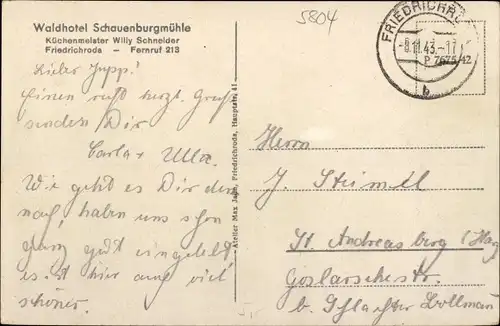 Waldhotel Schauenburgmühle
Küchenmeister Willy Schneider
Friedrichroda — Fernruf 213
5804
FRIEDRICHRODA
-8.11.43.-17
P 7675/42
b
Lieber Jupp!
Einen recht herzl. Gruß
senden Dir
Carla + Ulla.
Wie geht es Dir denn
noch, haben uns schon
ganz gut eingelebt
es ist hier auch viel
schöner.
Atelier Max Jahn, Friedrichroda, Hauptstr. 41
Herrn
J. Steimel
St. Andreasberg (Harz
Goslarschestr.
b. Schlachter Bollmann